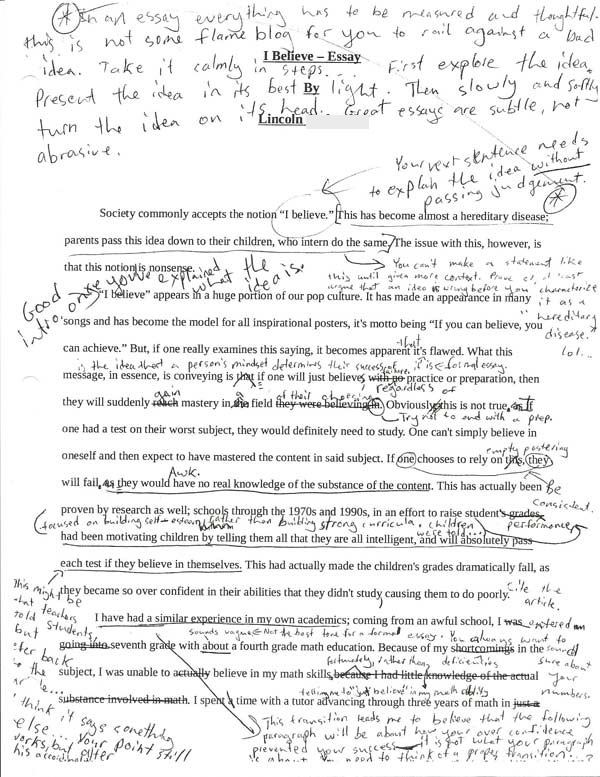 * In an essay everything has to be measured and thoughtful.
this is not some flame blog for you to rail against a bad
idea. Take it calmly in steps... First explore the idea.
I Believe – Essay
Present the idea in its best light. Then slowly and softly
By
turn the idea on its head. Great essays are subtle, not
Lincoln
abrasive.
Your next sentence needs
to explain the idea without
passing judgement.
*
Society commonly accepts the notion “I believe.” This has become almost a hereditary disease;
parents pass this idea down to their children, who intern do the same. The issue with this, however, is
that this notion is nonsense.
You can't make a statement like
this until given more context. Prove or at least
argue that an idea is wrong before you characterize
it as a
"hereditary
disease."
lol...
Good
intro once you've explained
what the
idea is.
“I believe” appears in a huge portion of our pop culture. It has made an appearance in many
songs and has become the model for all inspirational posters, it's motto being “If you can believe, you
can achieve.” But, if one really examines this saying, it becomes apparent it's flawed. What this
that
it is ← formal essay.
is the idea that a person's mindset determines their success or
failure.
message, in essence, is conveying is that if one will just believe, with no practice or preparation, then
regardless of
they will suddenly reach mastery in the field they were believing in. Obviously this is not true, as if
gain
a
of their choosing
It
Try not to end with a prep.
one had a test on their worst subject, they would definitely need to study. One can't simply believe in
oneself and then expect to have mastered the content in said subject. If one chooses to rely on this, they
empty posturing
Awk.
will fail, as they would have no real knowledge of the substance of the content. This has actually been
Be
consistent.
proven by research as well; schools through the 1970s and 1990s, in an effort to raise student's grades,
performance,
focused on building self-esteem rather than building strong curricula. Children
were told...
had been motivating children by telling them all that they are all intelligent, and will absolutely pass
each test if they believe in themselves. This had actually made the children's grades dramatically fall, as
they became so over confident in their abilities that they didn't study causing them to do poorly.
Cite the
article.
This might be
what teachers
told students
but
I have had a similar experience in my own academics; coming from an awful school, I was entered in
sounds vague ← Not the best tone for a formal essay. You always want to
sound
sure about
your
numbers.
going into seventh grade with about a fourth grade math education. Because of my shortcomings in the
deficiencies
subject, I was unable to actually believe in my math skills, because I had little knowledge of the actual
telling me to "just believe" in my math ability
substance involved in math. I spent a time with a tutor advancing through three years of math in just a
I think it says something
else... your point still
works, but
This transition leads me to believe that the following
paragraph will be about how your over confidence
prevented your success ← it is not what your paragraph
is about. need to think of a proper transition...?